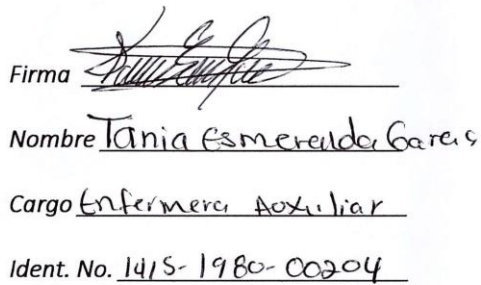 Firma
Nombre Tania Esmeralda Garcis
Cargo Enfermera Auxiliar
Ident. No. 1415-1980-00204